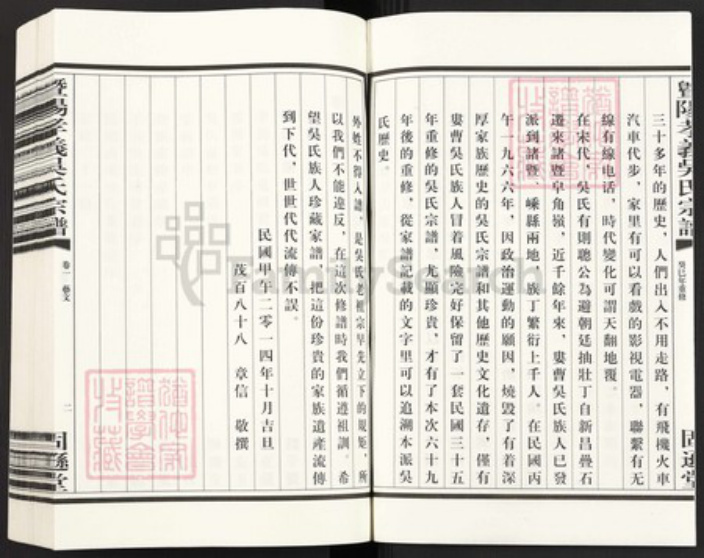 三十多年的歷史，人們出入不用走路，有飛機火車
汽車代步，家里有可以看戲的影視電器，聯繫有无
線有線电话，時代變化可謂天翻地覆。
在宋代，吳氏有則聰公為避朝廷抽壯丁自新昌疊石
遷來諸暨皁角嶺，近千餘年來，婁曹吳氏族人已發
派到諸暨、嵊縣兩地，族丁繁衍上千人，在民國丙
午一九六六年，因政治運動的願因，燒毁了有着深
厚家族歷史的吳氏宗譜和其他歷史文化遺存，僅有
婁曹吳氏族人冒着風險完好保留了一套民國三十五
年重修的吳氏宗譜，尤顯珍貴，才有了本次六十九
年後的重修，從家譜記載的文字里可以追溯本派吳
氏歷史。
癸巳年重修
固遜堂
外姓不得入譜，是吳氏老祖宗早先立下的規矩，所
以我們不能違反，在這次修譜時我們循遵祖訓。希
望吳氏族人珍藏家譜，把這份珍貴的家族遺産流傳
到下代，世世代代流傳不誤。
民國甲午二零一四年十月吉旦
茂百八十八 章信 敬撰
暨陽孝義吳氏宗譜
卷一 藝文
二
固遜堂
FamilySearch